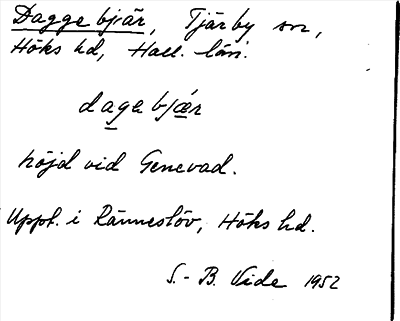 Dagge bjär, Tjärby sn,
Höks hd, Hall. län.
dage bjær
höjd vid Genevad.
Uppt. i Ränneslöv, Höks hd.
S.-B. Vide 1952